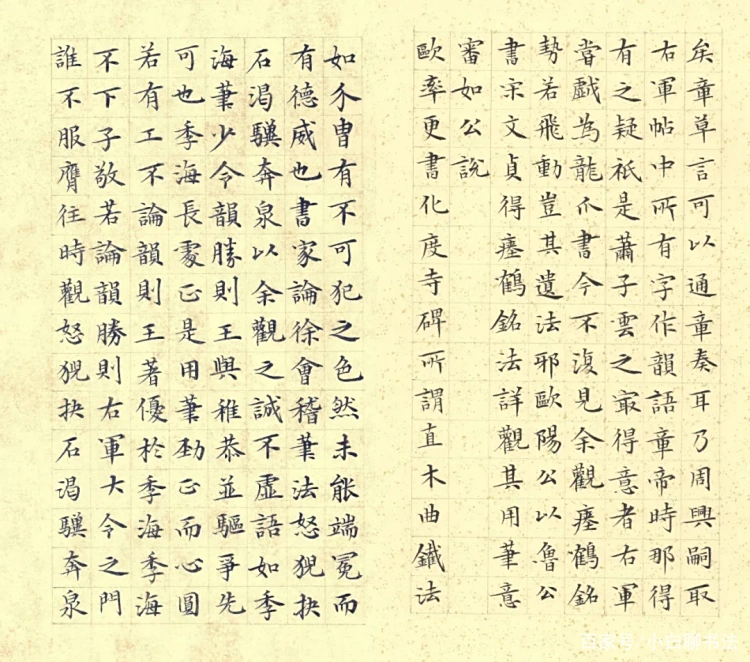 矣章草言可以通章奏耳乃周興嗣取
右軍帖中所有字作韻語章帝時那得
有之疑祇是蕭子雲之㝡得意者右軍
嘗戲為龍爪書今不復見余觀瘞鶴銘
勢若飛動豈其遺法邪歐陽公以魯公
書宋文貞得瘞鶴銘法詳觀其用筆意
審如公說
歐率更書化度寺碑所謂直木曲鐵法
如介冑有不可犯之色然未能端冕而
有德威也書家論徐會稽筆法怒猊抉
石渴驥奔泉以余觀之誠不虛語如季
海筆少令韻勝則王與稚恭並驅爭先
可也季海長處正是用筆勁正而心圓
若有工不論韻則王著優於季海季海
不下子敬若論韻勝則右軍大令之門
誰不服膺往時觀怒猊抉石渴驥奔泉